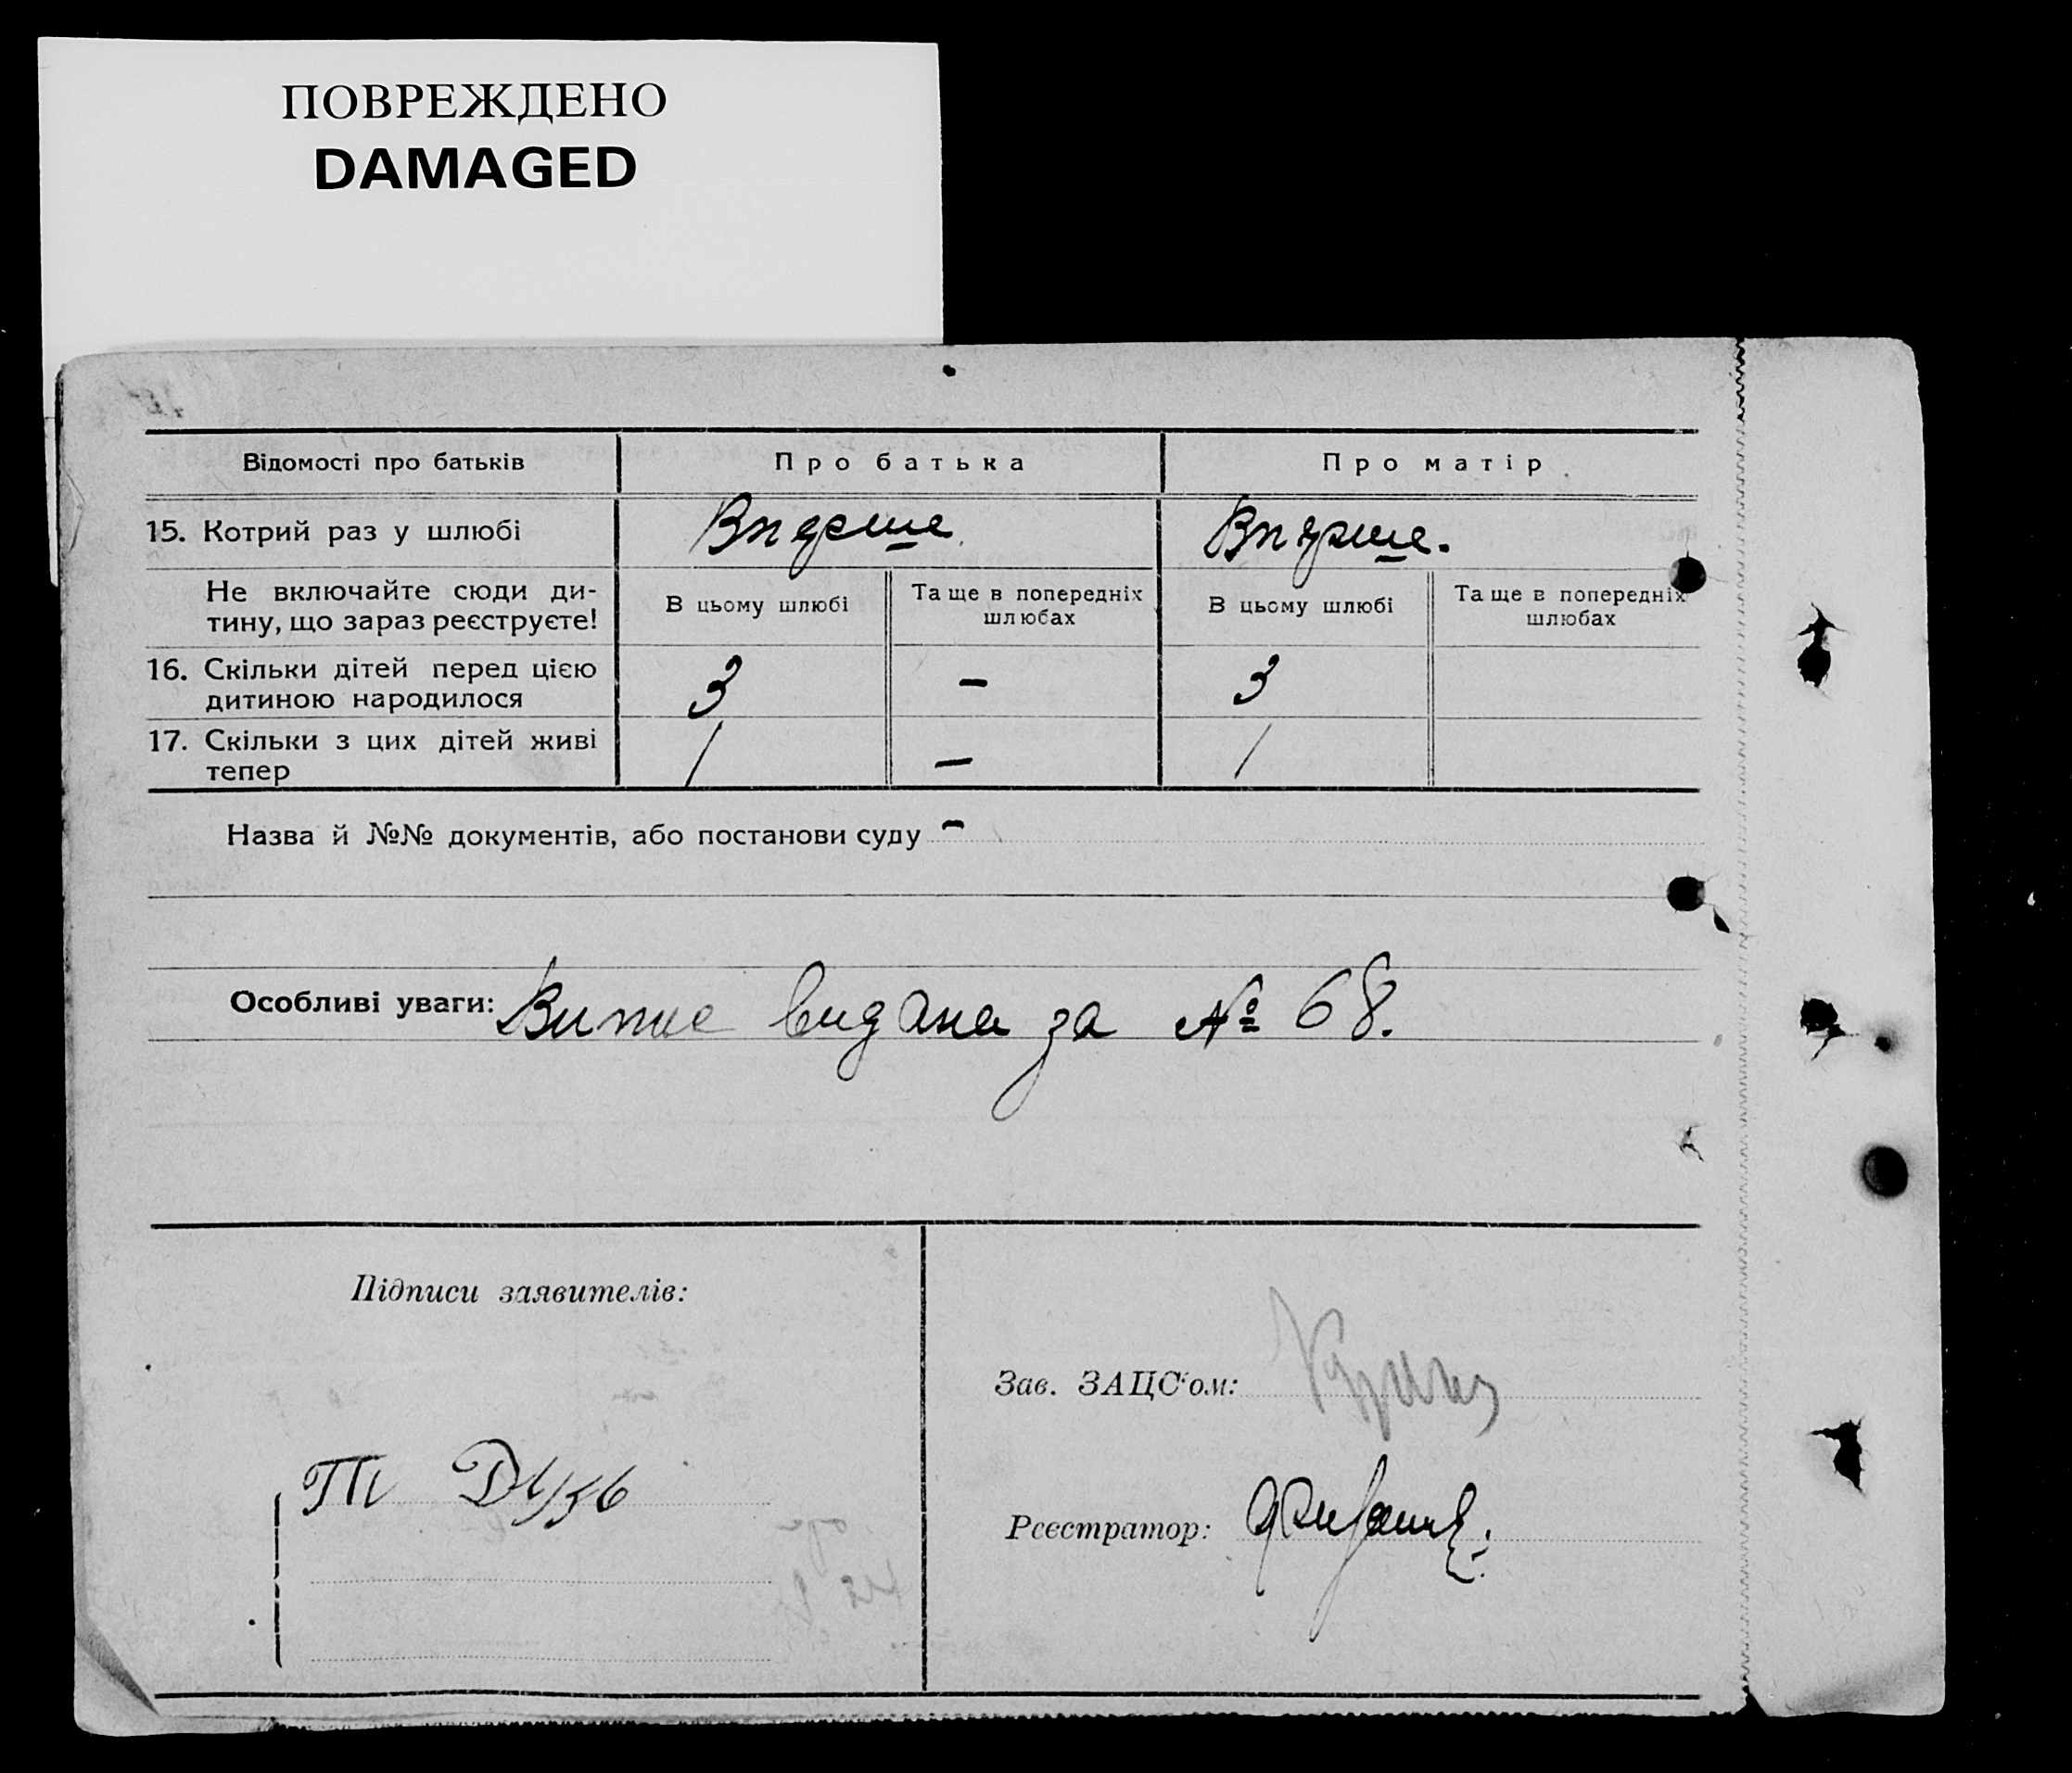 ПОВРЕЖДЕНО
DAMAGED
Відомості про батьків
Про батька
Про матір
15. Котрий раз у шлюбі
Вперше
Вперше.
Не включайте сюди ди-
тину, що зараз реєструєте!
В цьому шлюбі
Та ще в попередніх
шлюбах
В цьому шлюбі
Та ще в попередніх
шлюбах
16. Скільки дітей перед цією
дитиною народилося
3
-
3
17. Скільки з цих дітей живі
тепер
1
-
1
Назва й №№ документів, або постанови суду -
Особливі уваги: Випис видана за № 68.
Підписи заявителів:
Зав. ЗАЦС'ом:
Реєстратор: